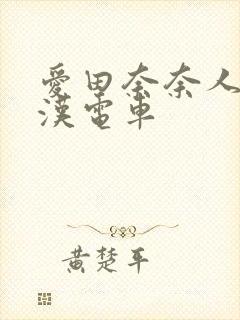 愛田奈奈人
漢電車
黄楚平